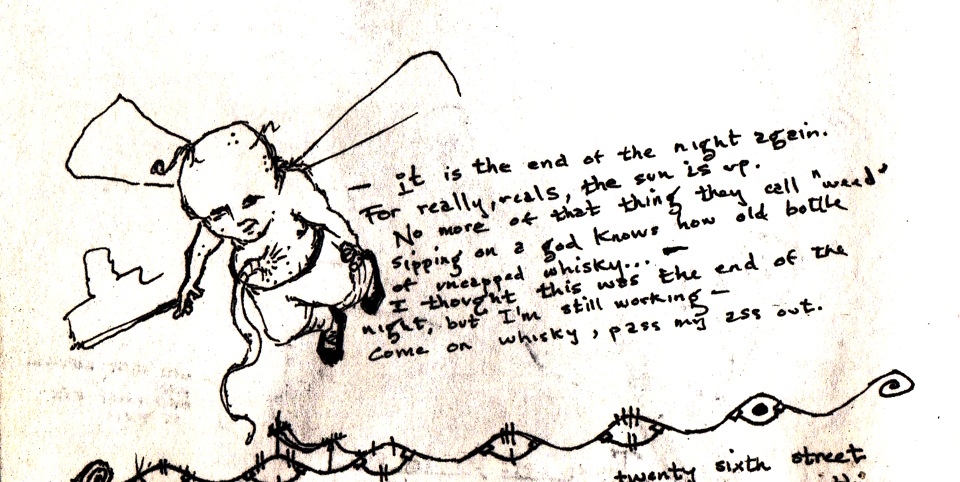 — it is the end of the night again.
For really, reals, the sun is up.
No more of that thing they call "weed"
sipping on a god knows how old bottle
of uncapped whisky... —
I thought this was the end of the
night, but I'm still working —
Come on whisky, pass my ass out.
twenty sixth street